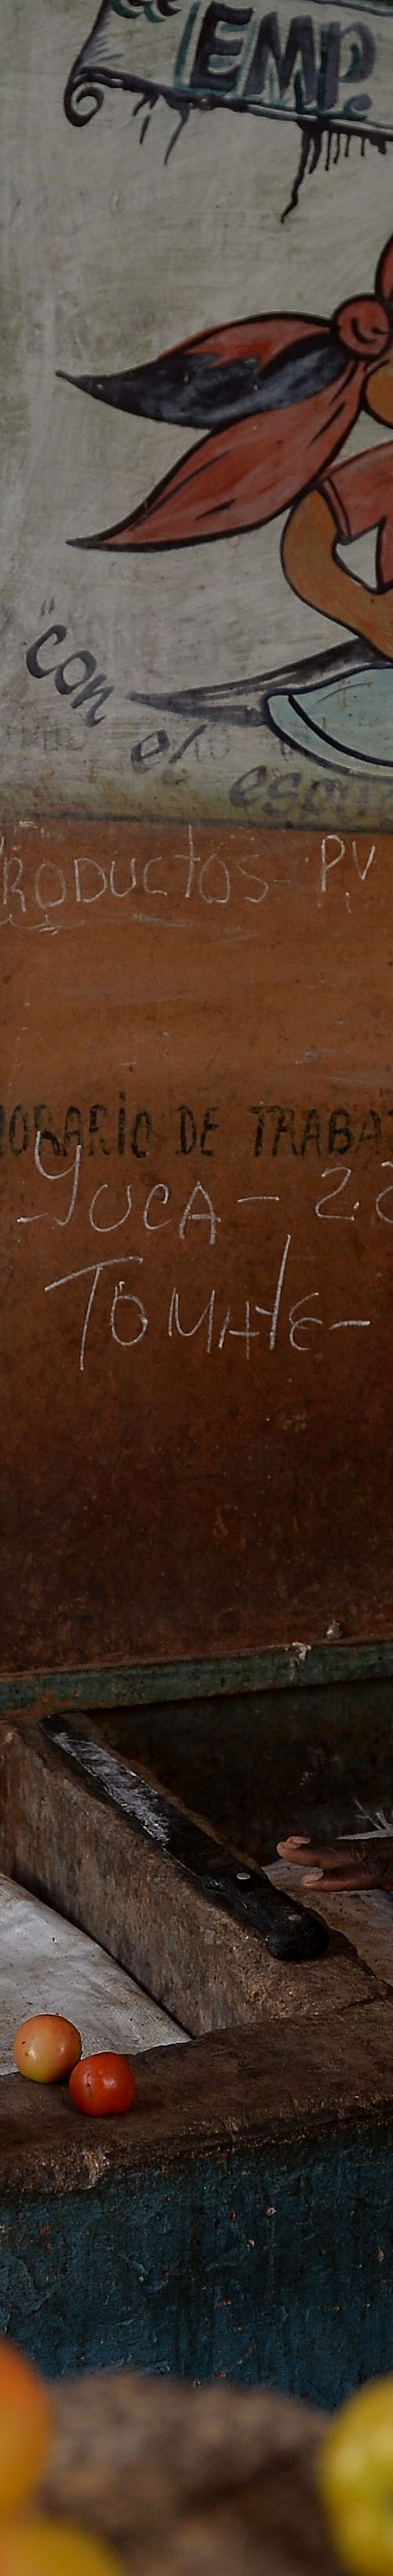 "EMP.
"con el
PRODUCTOS - P.V
HORARIO DE TRABA
YUCA - 2
TOMATE -